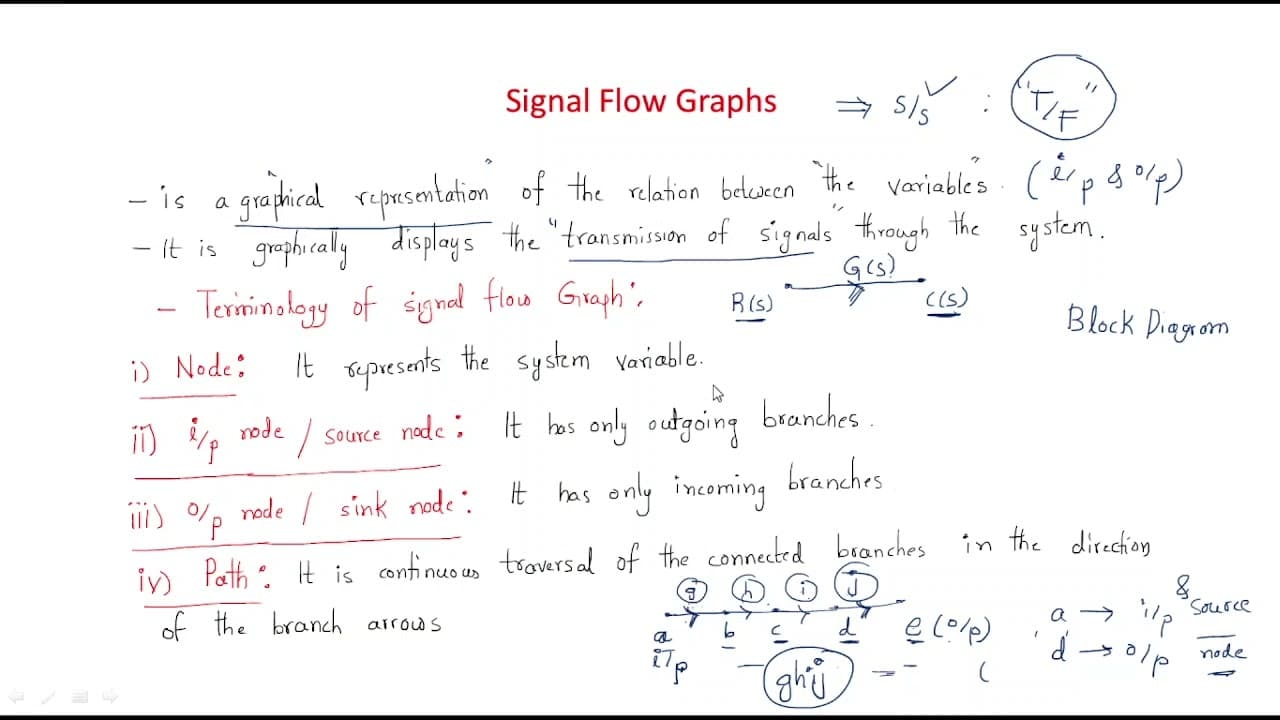 Signal Flow Graphs ⇒ s/s ✓ : "T/F"
- is a "graphical representation" of the relation between "the variables". (i/p & o/p)
- It is graphically displays the "transmission of signals" through the system.
G(s)
- Terminology of signal flow Graph: R(s) C(s)
Block Diagram
i) Node: It represents the system variable.
ii) i/p node / source node: It has only outgoing branches.
iii) o/p node / sink node: It has only incoming branches
iv) Path: It is continuous traversal of the connected branches in the direction
of the branch arrows
g h i j
a b c d e (o/p)
i/p
- ghij = - (
a → i/p & source
'd' → o/p node